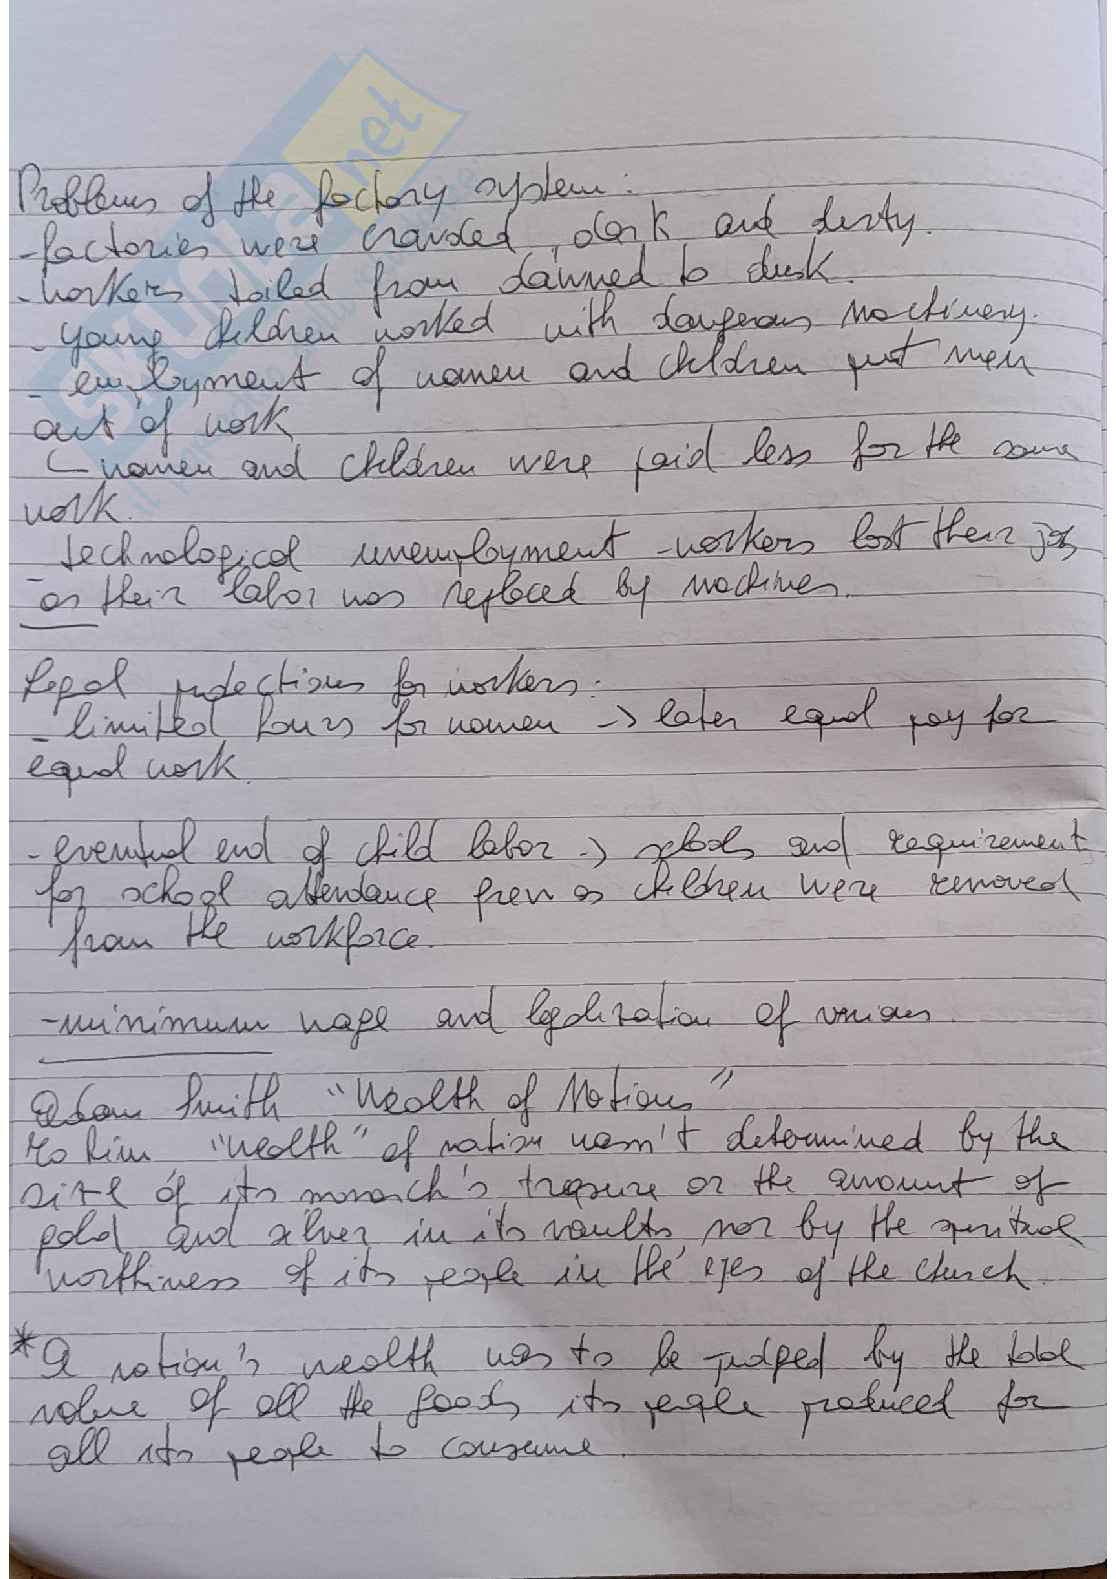 Problems of the factory system:
- factories were crowded, dark and dirty.
- workers toiled from dawned to dusk.
- young children worked with dangerous machinery.
- employment of women and children put men
out of work
women and children were paid less for the same
work.
- technological unemployment - workers lost their jobs
as their labor was replaced by machines.
Legal protections for workers:
- limited hours for women -> later equal pay for
equal work.
- eventual end of child labor -> schools and requirement
for school attendance grew as children were removed
from the workforce.
- minimum wage and legalization of unions.
Adam Smith "Wealth of Nations"
to him "wealth" of nation wasn't determined by the
size of its monarch's treasure or the amount of
gold and silver in its vaults nor by the spiritual
worthiness of its people in the eyes of the church.
* A nation's wealth was to be judged by the total
value of all the goods its people produced for
all its people to consume.
SKUOLA.net